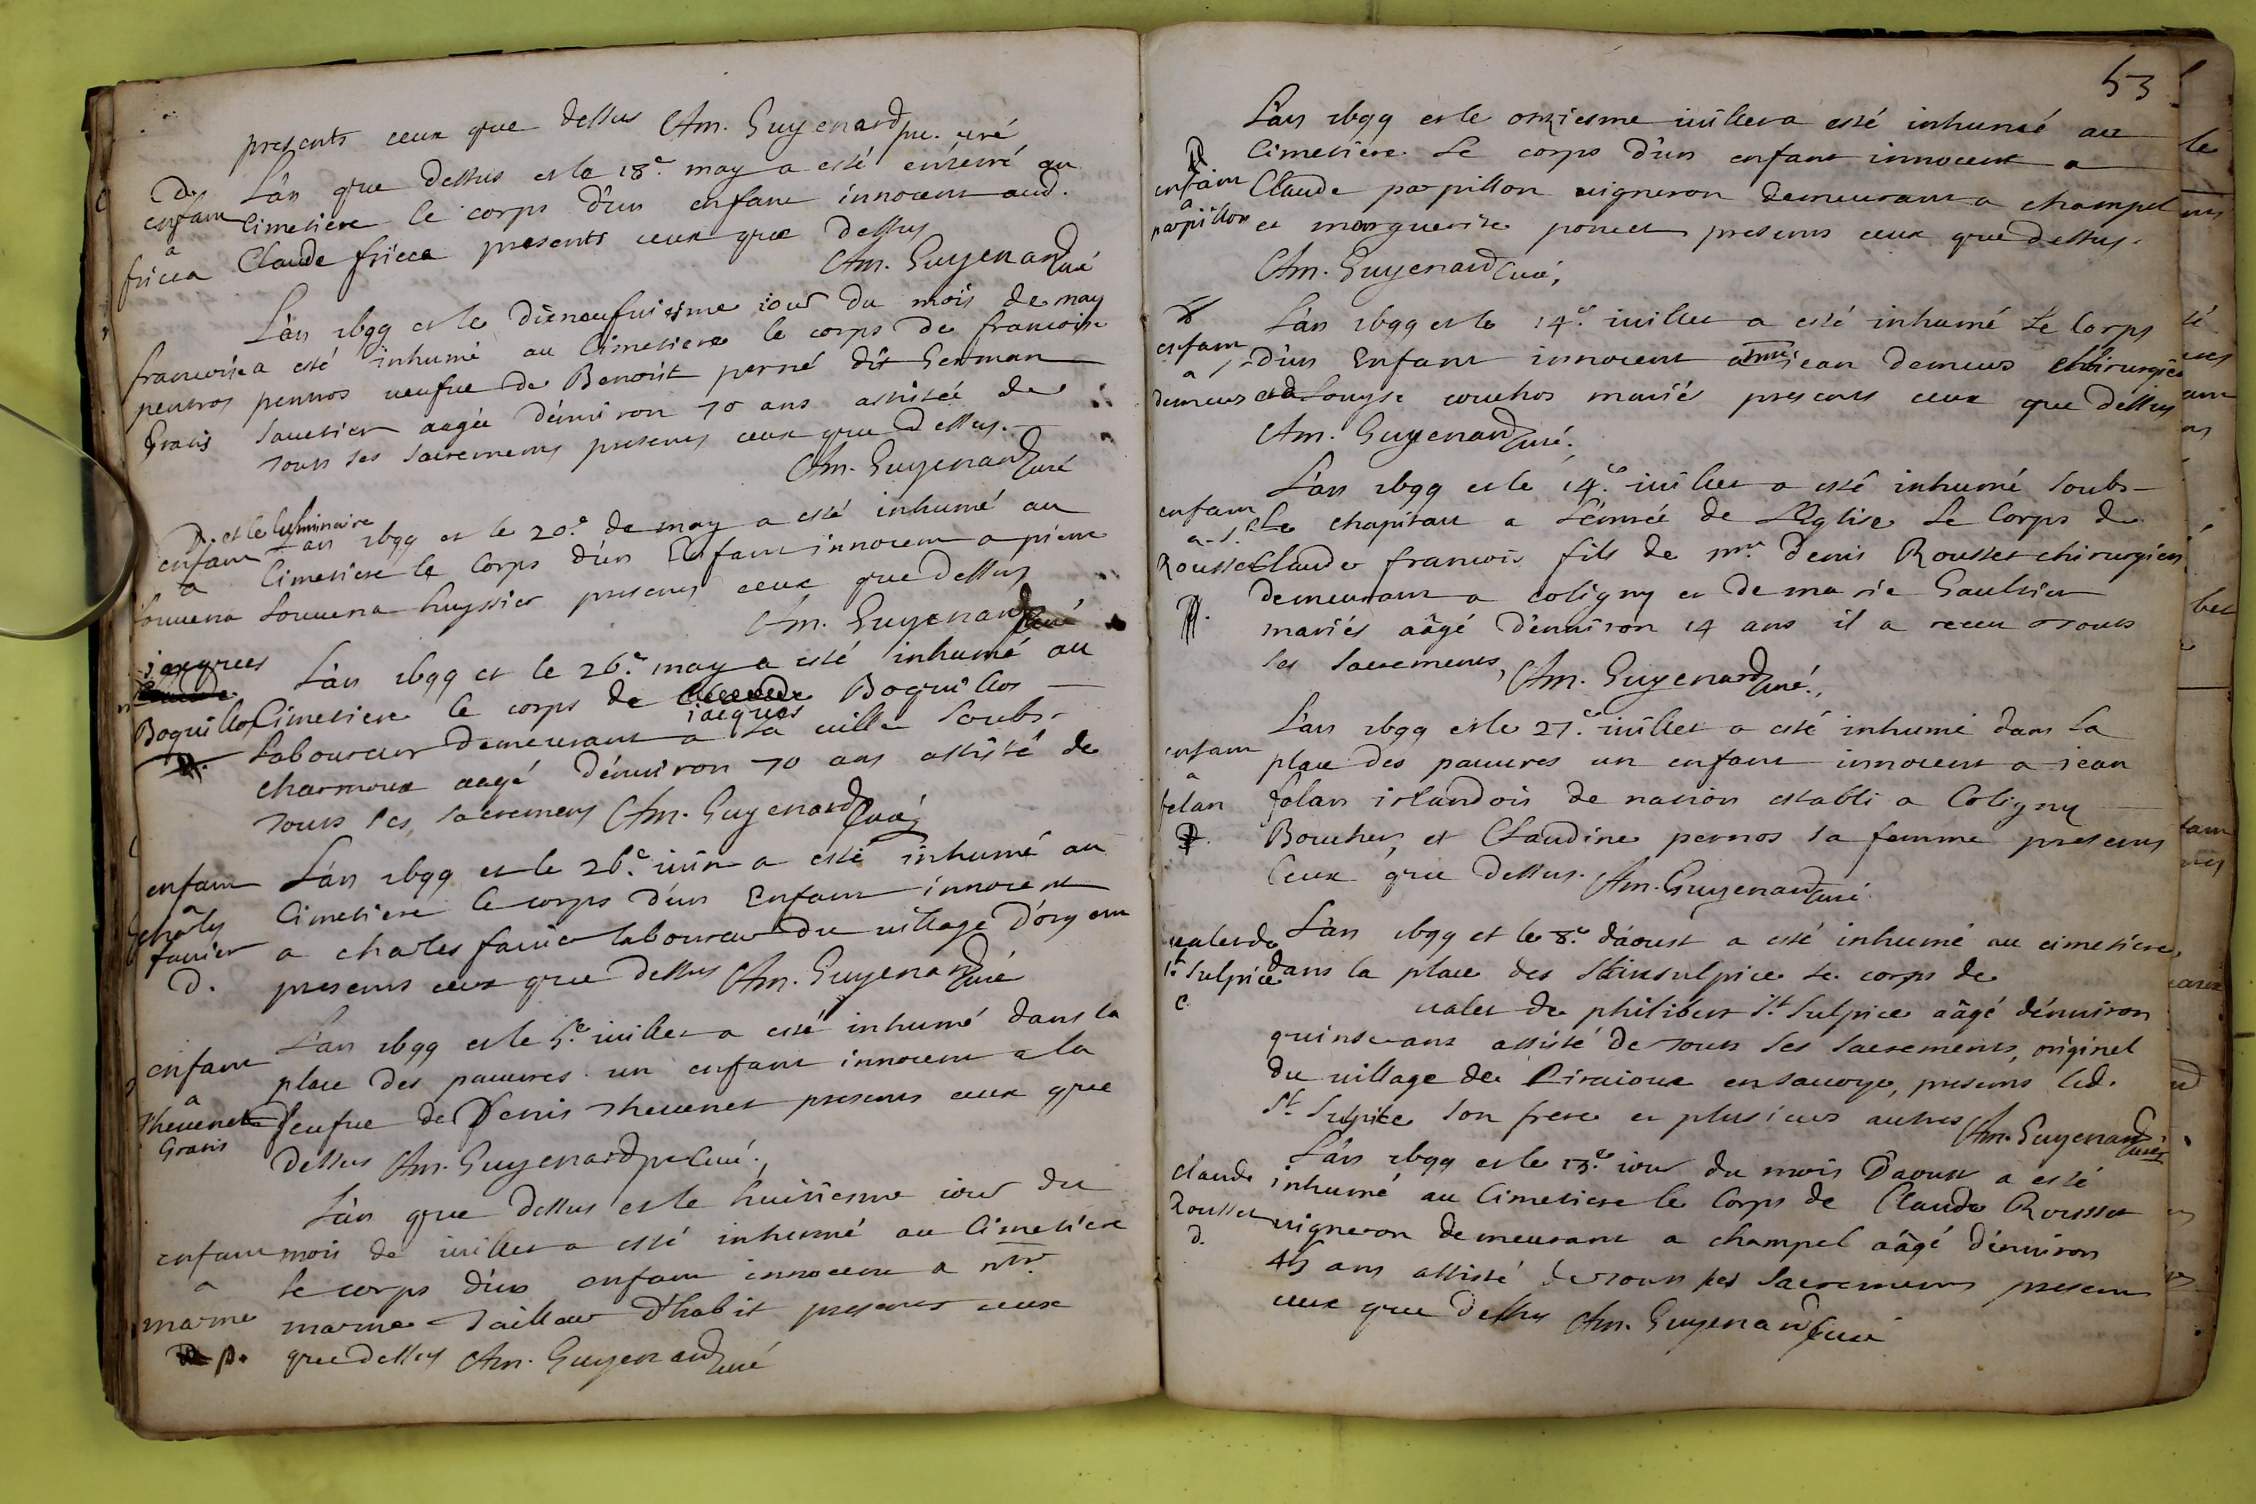 presents ceux que dessus Am. Guyenard pr. curé
D.
enfant
a
fricca
L'an que dessus et le 18.e may a esté enterré au
Cimetiere le corps d'un enfant innocent aud.
Claude fricca presents ceux que dessus
Am. Guyenard curé
francoise
pernos
Gratis
L'an 1699 et le dixneufuiesme iour du mois de may
a esté inhumé au Cimetiere le corps de francoise
pernos veufue de Benoist perné dit German
sauetier aagée d'enuiron 70 ans assistée de
tous ses sacremens presens ceux que dessus.
Am. Guyenard curé
D. et le luminaire
enfant
a
Louuena
L'an 1699 et le 20.e de may a esté inhumé au
Cimetiere le Corps d'un Enfant innocent a pierre
Louuena huyssier presens ceux que dessus
Am. Guyenard curé
jacques
Boquillos
L'an 1699 et le 26.e may a esté inhumé au
Cimetiere le corps de Boquillos
jacques
laboureur demeurant a la ville soubs
charmoux aagé d'enuiron 70 ans assisté de
tous ses sacremens Am. Guyenard Curé
enfant
a
charles
fauier
D.
L'an 1699 et le 26.e iuin a esté inhumé au
Cimetiere le corps d'un Enfant innocent
a charles fauier laboureur du village d'
presens ceux que dessus Am. Guyenard curé
enfant
a
Theuenet
Gratis
L'an 1699 et le 5.e iuillet a esté inhumé dans la
place des pauures un enfant innocent a la
veufue de Denis Theuenet presens ceux que
dessus Am. Guyenard pr Curé.
enfant
a
marme
p.
L'an que dessus et le huitiesme iour du
mois de iuillet a esté inhumé au Cimetiere
le corps d'un enfant innocent a
marme Tailleur d'habit presens ceux
que dessus Am. Guyenard curé
53
enfant
a
papillon
L'an 1699 et le onziesme iuillet a esté inhumé au
Cimetiere Le corps d'un enfant innocent a
Claude papillon vigneron demeurant a champel
et marguerite poncet presens ceux que dessus.
Am. Guyenard Curé,
enfant
a
demeus
L'an 1699 et le 14.e iuillet a esté inhumé Le Corps
d'un Enfant innocent a jean demeus Chirurgien
et a Louyse couchos mariés presents ceux que dessus
Am. Guyenard curé.
enfant
a
Rousset
L'an 1699 et le 14.e iuillet a esté inhumé soubs
Le chapitau a L'entrée de L'Eglise Le Corps de
Claude francois fils de mr. Denis Rousset chirurgien
demeurant a coligny et de marie Gaultier
mariés aâgé d'enuiron 14 ans il a receu tous
ses sacremens, Am. Guyenard curé.
enfant
a
folan
L'an 1699 et le 27.e iuillet a esté inhumé dans La
place des pauures un enfant innocent a jean
folan irlandois de nation establi a Coligny
Boucher, et Claudine pernos sa femme presens
Ceux que dessus. Am. Guyenard curé
valet de
St. Sulpice
C
L'an 1699 et le 8.e d'aoust a esté inhumé au cimetiere
dans la place des Stinsulpice Le corps de
valet de philibert St. Sulpice aâgé d'enuiron
quinse ans assisté de tous ses sacremens, originel
du village de en sauoye, presens led.
St. Sulpice son frere et plusieurs autres Am. Guyenard curé
claude
Rousset
D.
L'an 1699 et le 13.e iour du mois D'aoust a esté
inhumé au Cimetiere le Corps de Claude Rousset
vigneron demeurant a champel aâgé d'enuiron
45 ans assisté de tous ses sacremens presens
ceux que dessus Am. Guyenard Curé